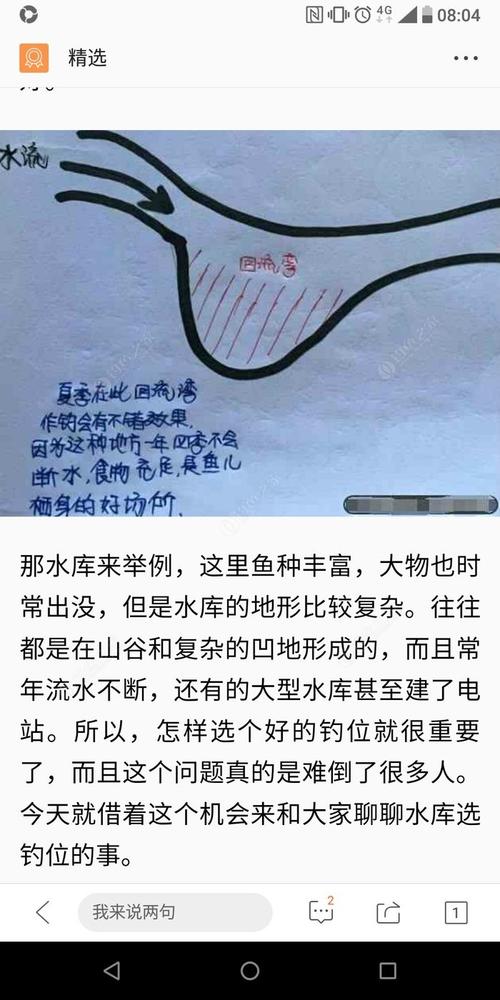 4G
08:04
精选
水流
回流湾
夏季在此回流湾
作钓会有不错效果,
因为这种地方一年四季不会
断水,食物充足,是鱼儿
栖身的好场所.
那水库来举例，这里鱼种丰富，大物也时
常出没，但是水库的地形比较复杂。往往
都是在山谷和复杂的凹地形成的，而且常
年流水不断，还有的大型水库甚至建了电
站。所以，怎样选个好的钓位就很重要
了，而且这个问题真的是难倒了很多人。
今天就借着这个机会来和大家聊聊水库选
钓位的事。
我来说两句
2
1